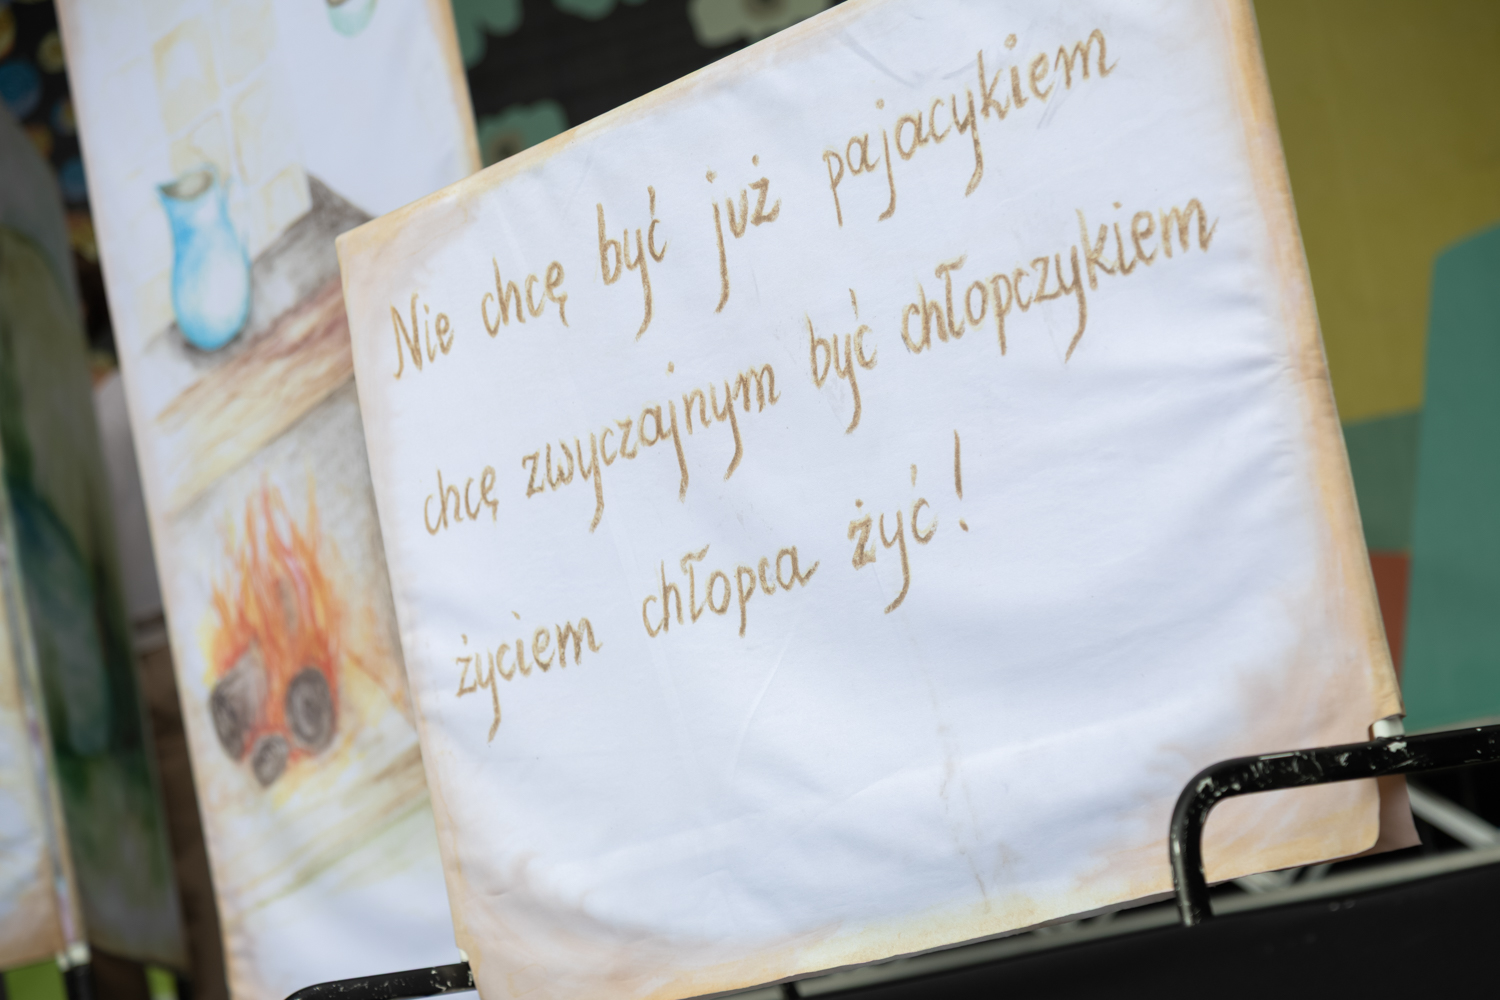 Nie chcę być już pajacykiem
chcę zwyczajnym być chłopczykiem
życiem chłopca żyć!